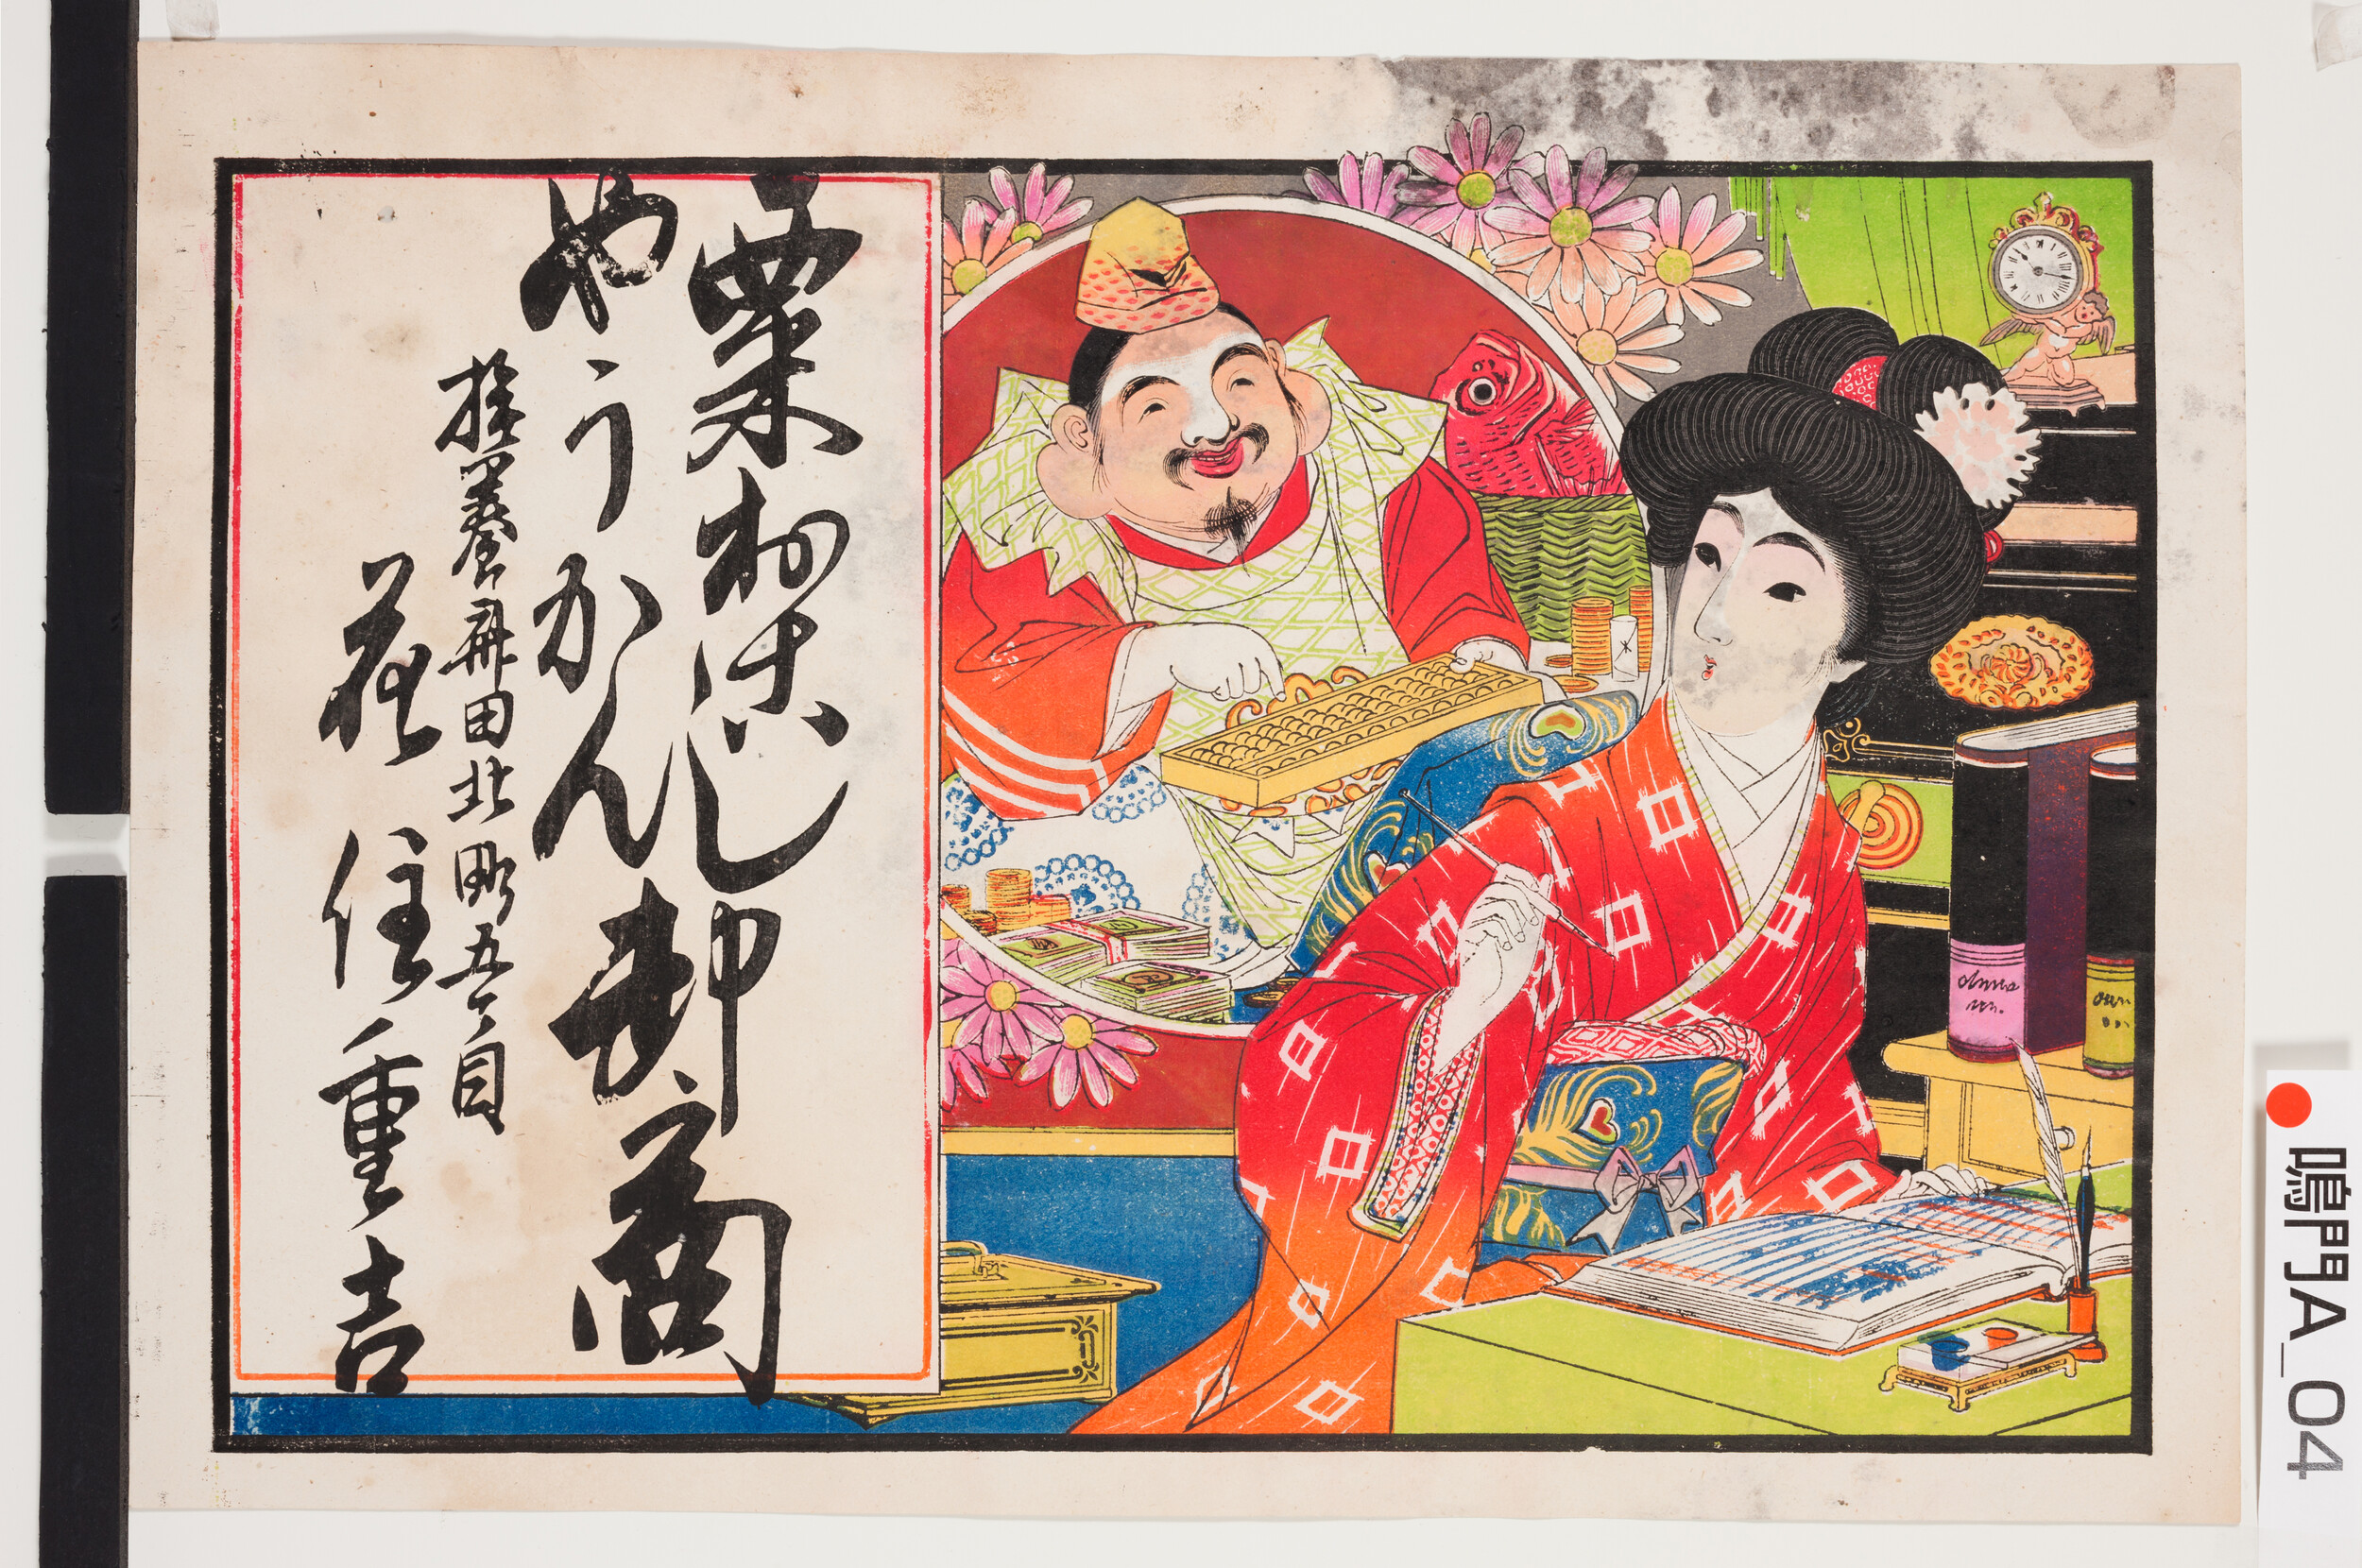 粟おこし
やうかん
卸商
撫養斎田北町五丁目
住重吉
鳴門A_04